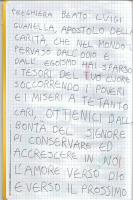 PREGHIERA BEATO LUIGI
GUANELLA, APOSTOLO DELLA
CARITÀ, CHE NEL MONDO
PERVASO DALL'ODIO E
DALL'EGOISMO HAI SPARSO
I TESORI DEL TUO CUORE
SOCCORRENDO I POVERI
E I MISERI A TE TANTO
CARI, OTTIENICI DALLA
BONTÀ DEL SIGNORE
DI CONSERVARE ED
ACCRESCERE IN NOI
L'AMORE VERSO DIO
E VERSO IL PROSSIMO